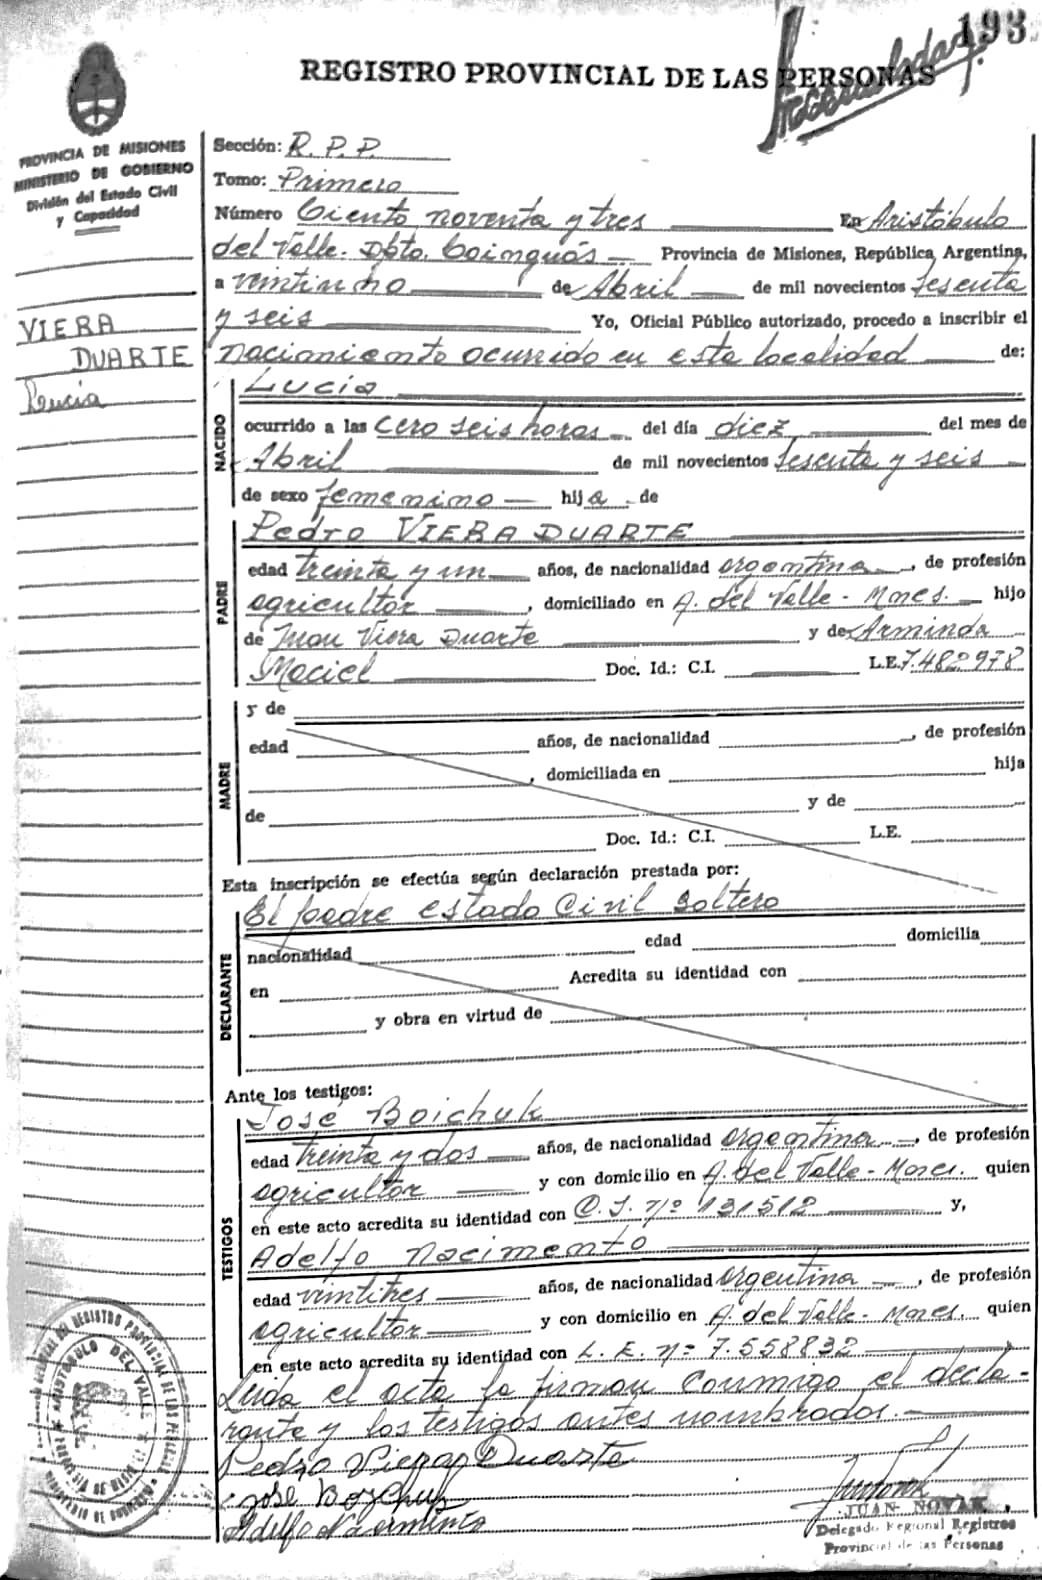 193
REGISTRO PROVINCIAL DE LAS PERSONAS
PROVINCIA DE MISIONES
MINISTERIO DE GOBIERNO
División del Estado Civil
y Capacidad
VIERA
DUARTE
Lucía
Sección: R. P. P.
Tomo: Primero
Número Ciento noventa y tres En Aristóbulo
del Valle. Dpto. Cainguás Provincia de Misiones, República Argentina,
a veintiocho de Abril de mil novecientos sesenta
y seis Yo, Oficial Público autorizado, procedo a inscribir el
nacimiento ocurrido en esta localidad de:
NACIDO
Lucía
ocurrido a las cero seis horas del día diez del mes de
Abril de mil novecientos sesenta y seis
de sexo femenino hija de
PADRE
Pedro VIERA DUARTE
edad treinta y un años, de nacionalidad argentina, de profesión
agricultor, domiciliado en A. del Valle - Mnes. hijo
de Juan Viera Duarte y de Arminda
Maciel Doc. Id.: C.I. L.E. 7.482978
MADRE
y de
edad años, de nacionalidad , de profesión
, domiciliada en hija
de y de
Doc. Id.: C.I. L.E.
Esta inscripción se efectúa según declaración prestada por:
DECLARANTE
El padre estado Civil Soltero
nacionalidad edad domicilia
en Acredita su identidad con
y obra en virtud de
Ante los testigos:
TESTIGOS
José Boichuk
edad treinta y dos años, de nacionalidad argentina, de profesión
agricultor y con domicilio en A. del Valle - Mnes. quien
en este acto acredita su identidad con C. I. nº 131512 y,
Adelfo Nacimento
edad veintitres años, de nacionalidad argentina, de profesión
agricultor y con domicilio en A. del Valle - Mnes. quien
en este acto acredita su identidad con L. E. nº 7.558832
Leida el acta la firman conmigo el decla-
rante y los testigos antes nombrados.
Pedro Viera Duarte
José
Adelfo Nacimento
JUAN NOVAK
Delegado Regional Registros
Provincial de las Personas